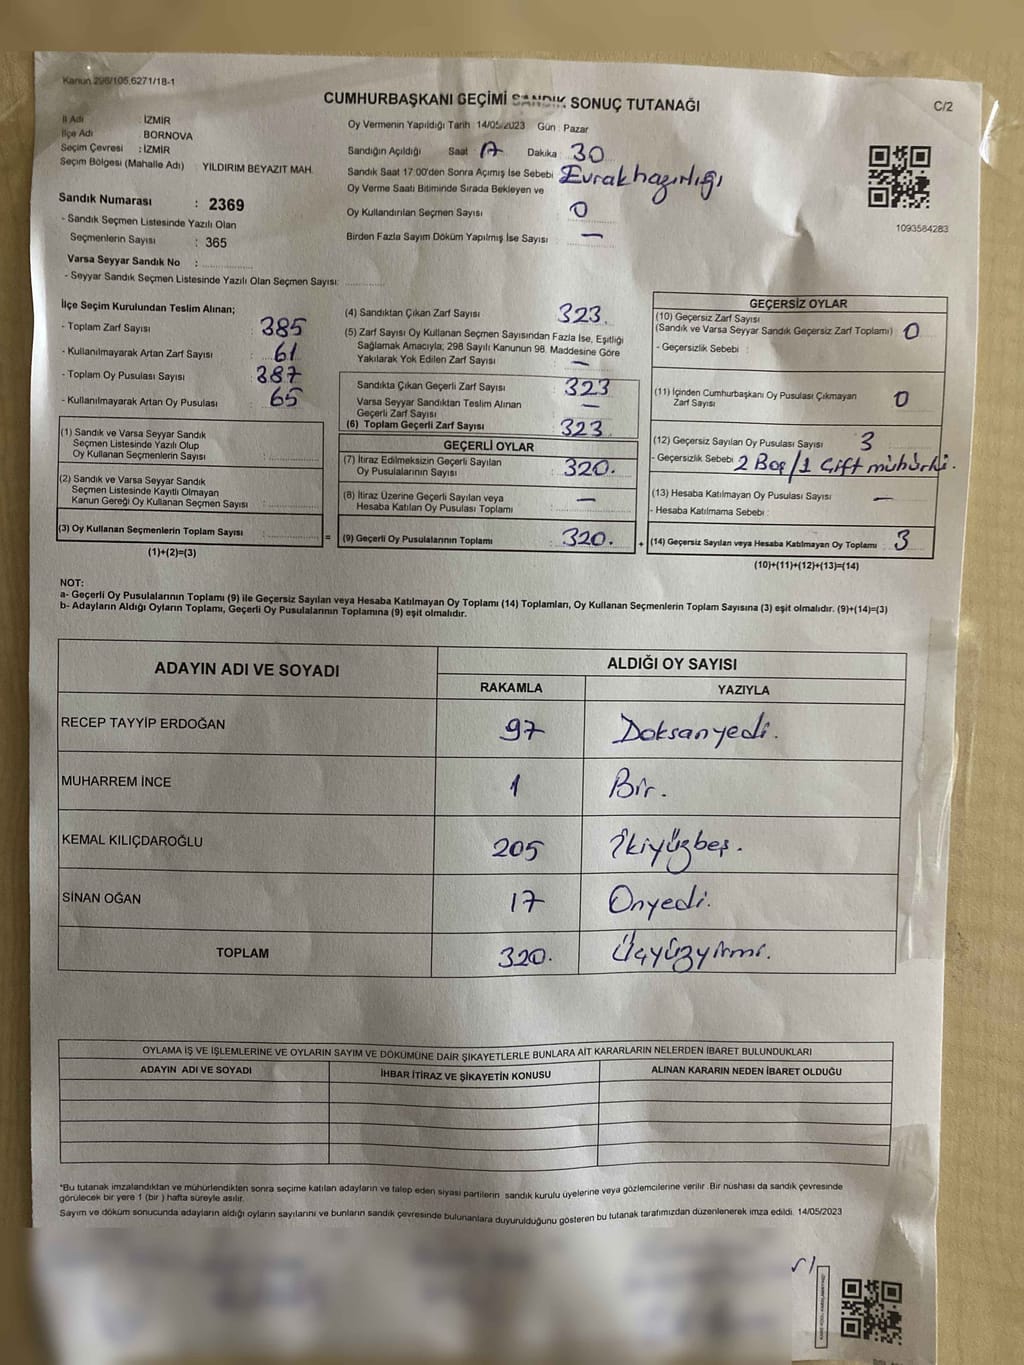 Kanun 298/105,6271/18-1
CUMHURBAŞKANI SEÇİMİ SANDIK SONUÇ TUTANAĞI
C/2
İl Adı : İZMİR
İlçe Adı : BORNOVA
Seçim Çevresi : İZMİR
Seçim Bölgesi (Mahalle Adı) YILDIRIM BEYAZIT MAH.
Sandık Numarası : 2369
- Sandık Seçmen Listesinde Yazılı Olan
Seçmenlerin Sayısı : 365
Varsa Seyyar Sandık No :
- Seyyar Sandık Seçmen Listesinde Yazılı Olan Seçmen Sayısı:
Oy Vermenin Yapıldığı Tarih : 14/05/2023 Gün : Pazar
Sandığın Açıldığı Saat : 17 Dakika : 30
Sandık Saat 17:00'den Sonra Açılmış İse Sebebi : Evrak hazırlığı
Oy Verme Saati Bitiminde Sırada Bekleyen ve
Oy Kullandırılan Seçmen Sayısı : 0
Birden Fazla Sayım Döküm Yapılmış İse Sayısı : —
1093584283
İlçe Seçim Kurulundan Teslim Alınan;
- Toplam Zarf Sayısı : 385
- Kullanılmayarak Artan Zarf Sayısı : 61
- Toplam Oy Pusulası Sayısı : 387
- Kullanılmayarak Artan Oy Pusulası : 65
(1) Sandık ve Varsa Seyyar Sandık
Seçmen Listesinde Yazılı Olup
Oy Kullanan Seçmenlerin Sayısı :
(2) Sandık ve Varsa Seyyar Sandık
Seçmen Listesinde Kayıtlı Olmayan
Kanun Gereği Oy Kullanan Seçmen Sayısı :
(3) Oy Kullanan Seçmenlerin Toplam Sayısı :
(1)+(2)=(3)
=
(4) Sandıktan Çıkan Zarf Sayısı : 323.
(5) Zarf Sayısı Oy Kullanan Seçmen Sayısından Fazla İse, Eşitliği
Sağlamak Amacıyla; 298 Sayılı Kanunun 98. Maddesine Göre
Yakılarak Yok Edilen Zarf Sayısı : —
Sandıkta Çıkan Geçerli Zarf Sayısı : 323
Varsa Seyyar Sandıktan Teslim Alınan
Geçerli Zarf Sayısı : —
(6) Toplam Geçerli Zarf Sayısı : 323
GEÇERLİ OYLAR
(7) İtiraz Edilmeksizin Geçerli Sayılan
Oy Pusulalarının Sayısı : 320.
(8) İtiraz Üzerine Geçerli Sayılan veya
Hesaba Katılan Oy Pusulası Toplamı : —
(9) Geçerli Oy Pusulalarının Toplamı : 320.
+
GEÇERSİZ OYLAR
(10) Geçersiz Zarf Sayısı
(Sandık ve Varsa Seyyar Sandık Geçersiz Zarf Toplamı) : 0
- Geçersizlik Sebebi :
(11) İçinden Cumhurbaşkanı Oy Pusulası Çıkmayan
Zarf Sayısı : 0
(12) Geçersiz Sayılan Oy Pusulası Sayısı : 3
- Geçersizlik Sebebi : 2 Boş / 1 çift mühürlü.
(13) Hesaba Katılmayan Oy Pusulası Sayısı : —
- Hesaba Katılmama Sebebi :
(14) Geçersiz Sayılan veya Hesaba Katılmayan Oy Toplamı : 3
(10)+(11)+(12)+(13)=(14)
NOT:
a- Geçerli Oy Pusulalarının Toplamı (9) ile Geçersiz Sayılan veya Hesaba Katılmayan Oy Toplamı (14) Toplamları, Oy Kullanan Seçmenlerin Toplam Sayısına (3) eşit olmalıdır. (9)+(14)=(3)
b- Adayların Aldığı Oyların Toplamı, Geçerli Oy Pusulalarının Toplamına (9) eşit olmalıdır.
ADAYIN ADI VE SOYADI
ALDIĞI OY SAYISI
RAKAMLA YAZIYLA
RECEP TAYYİP ERDOĞAN 97 Doksanyedi.
MUHARREM İNCE 1 Bir.
KEMAL KILIÇDAROĞLU 205 İkiyüzbeş.
SİNAN OĞAN 17 Onyedi.
TOPLAM 320. Üçyüzyirmi.
OYLAMA İŞ VE İŞLEMLERİNE VE OYLARIN SAYIM VE DÖKÜMÜNE DAİR ŞİKAYETLERLE BUNLARA AİT KARARLARIN NELERDEN İBARET BULUNDUKLARI
ADAYIN ADI VE SOYADI İHBAR İTİRAZ VE ŞİKAYETİN KONUSU ALINAN KARARIN NEDEN İBARET OLDUĞU
*Bu tutanak imzalandıktan ve mühürlendikten sonra seçime katılan adayların ve talep eden siyasi partilerin sandık kurulu üyelerine veya gözlemcilerine verilir .Bir nüshası da sandık çevresinde
görülecek bir yere 1 (bir ) hafta süreyle asılır.
Sayım ve döküm sonucunda adayların aldığı oyların sayılarını ve bunların sandık çevresinde bulunanlara duyurulduğunu gösteren bu tutanak tarafımızdan düzenlenerek imza edildi. 14/05/2023